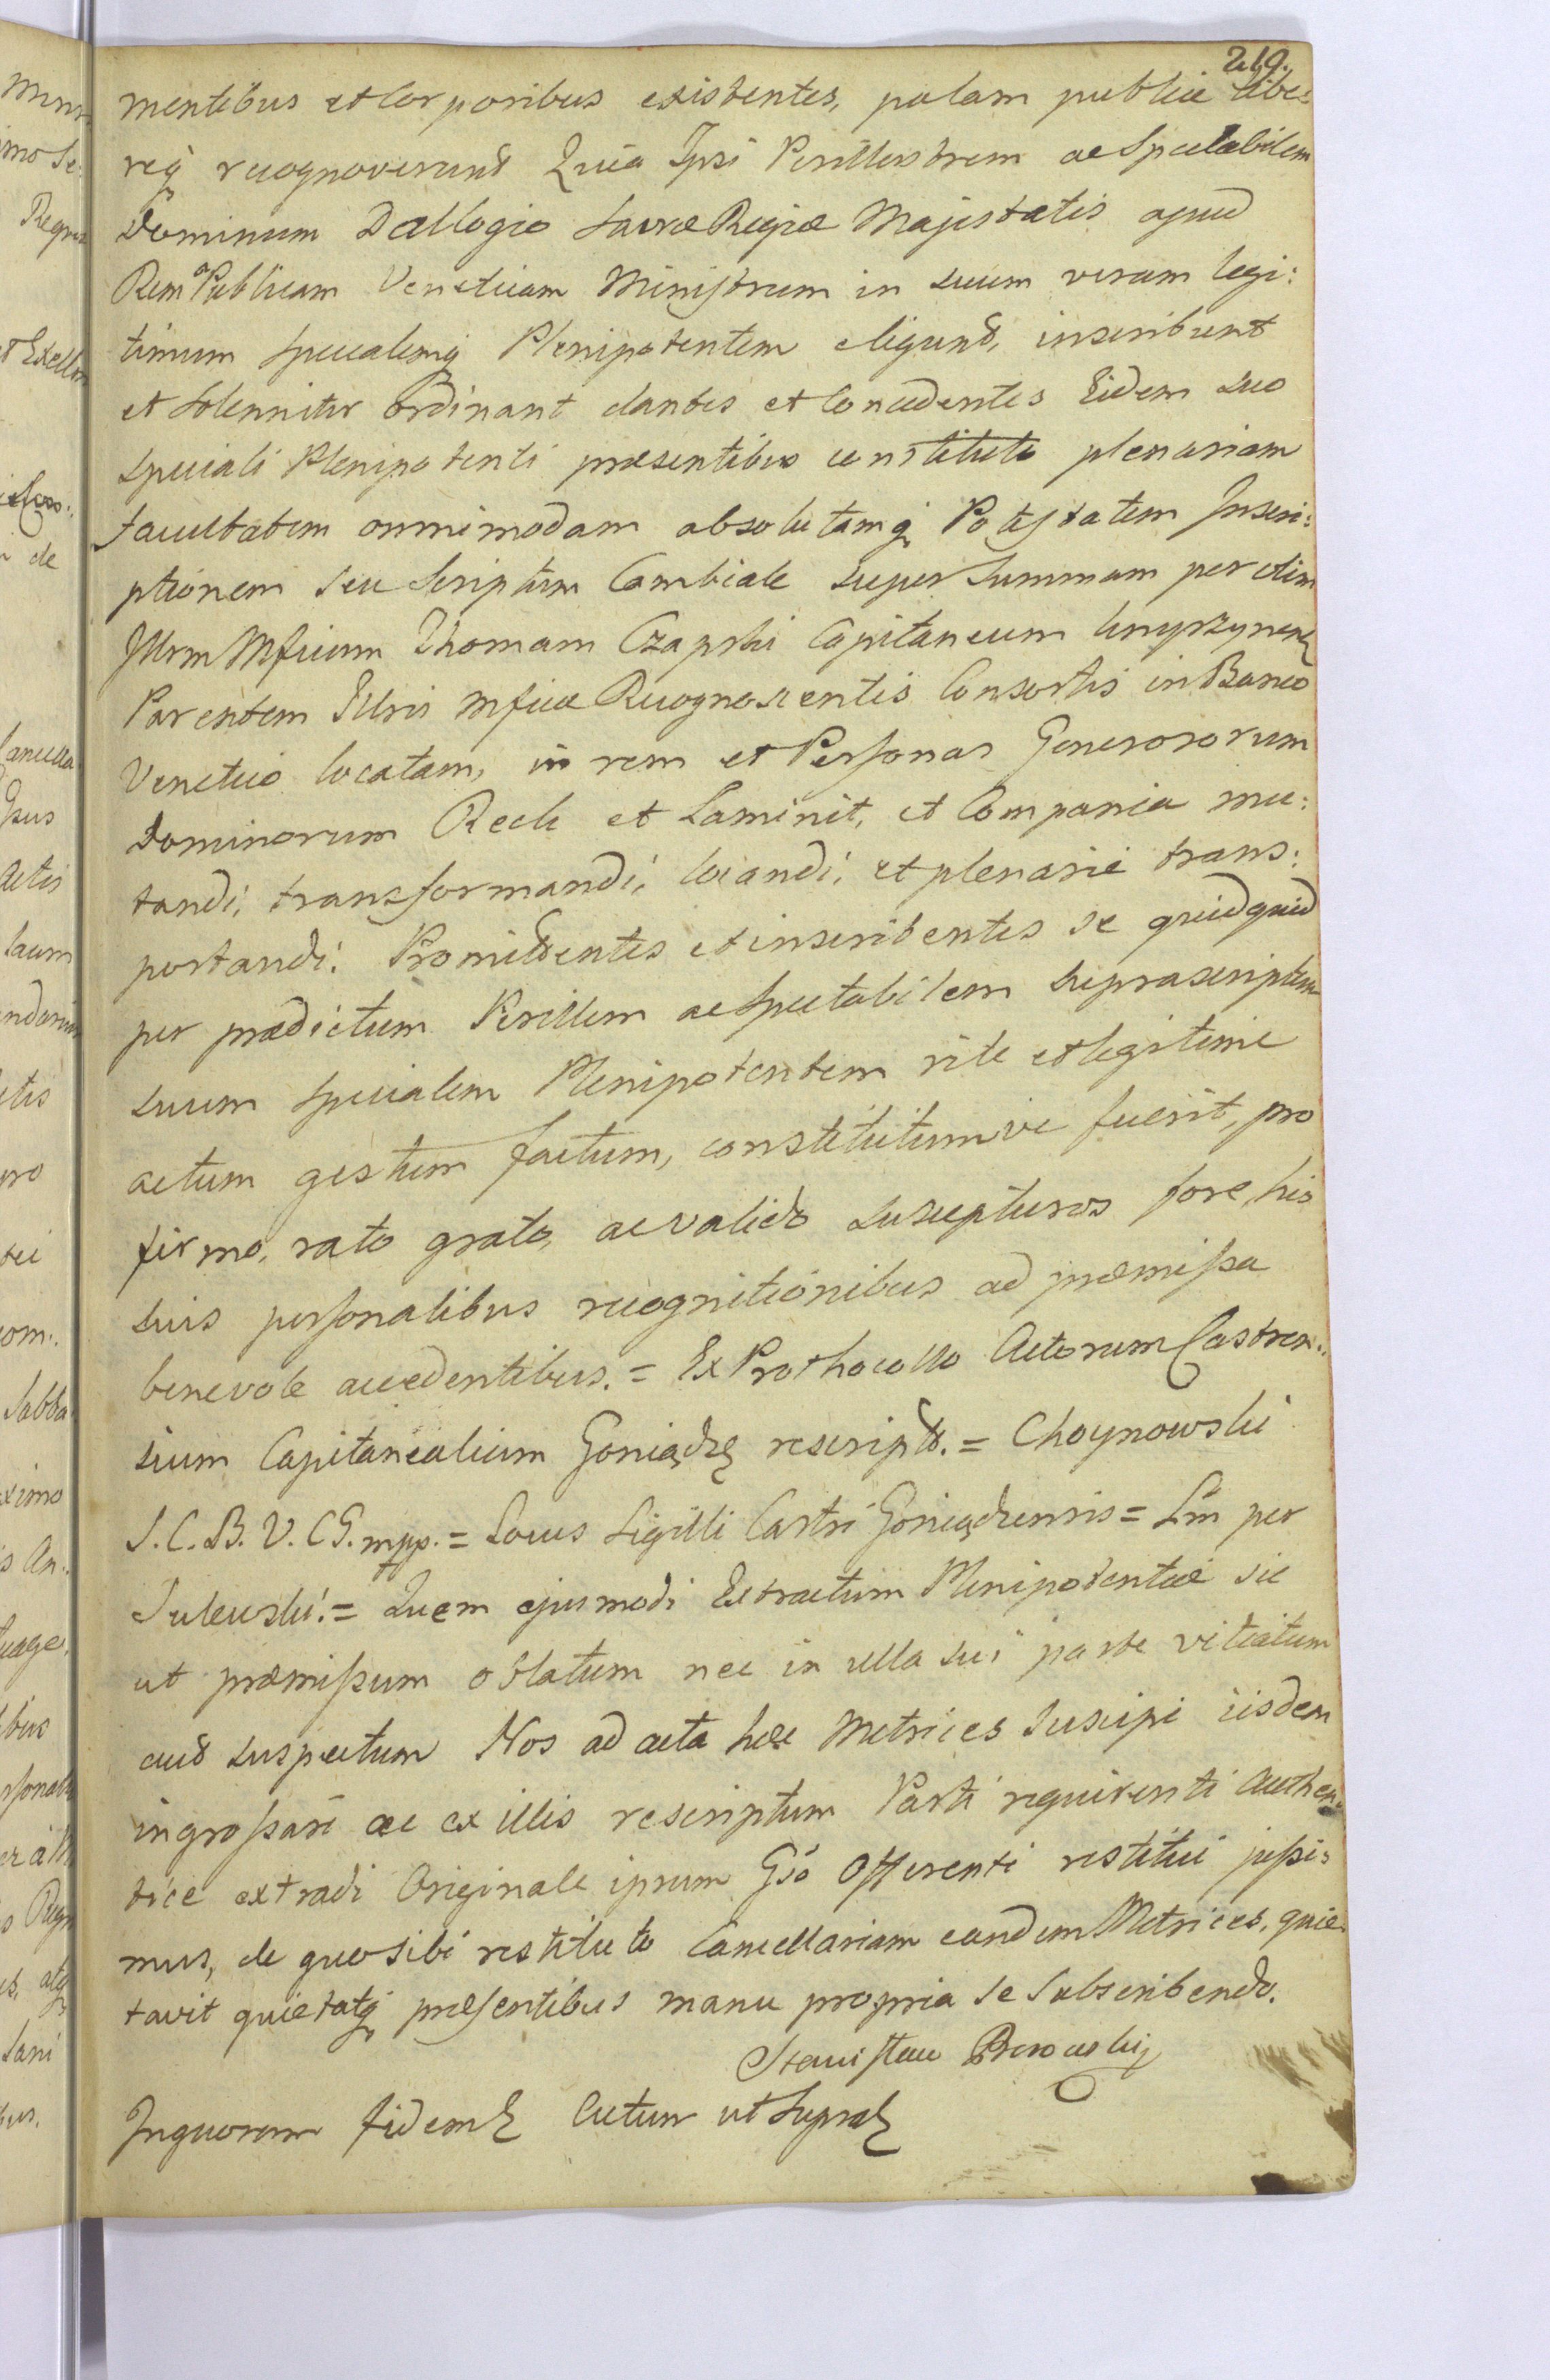 219.
mentibus et Corporibus existentes, palam publice libe:
reqꝫ recognoverunt Quia Ipsi Perillustrem ac Spectabilem
Dominum Dallogio Sacræ Regiæ Majestatis apud
Rem Publicam Veneticam Ministrum in suum verum legi:
timum specialemqꝫ Plenipotentem eligunt, inscribunt
et solenniter ordinant dantes et Concedentes Eidem suo
speciali Plenipotenti præsentibus constituto plenariam
facultatem omnimodam absolutamqꝫ Potestatem Inscri:
ptionem seu Scriptum Cambiale super Summam per olim
Illrm Mficum Thomam Czapski Capitaneum Knyszynen
Parentem Illris Mficæ Recognoscentis Consortis in Banco
Venetico locatam, in rem et Personas Generosorum
Dominorum Reck et Laminit, et Compania mu:
tandi, transformandi, locandi, et plenarie trans:
portandi. Promittentes et inscribentes se quidquid
per prædictum Perillem ac Spectabilem suprascriptum
suum specialem Plenipotentem rite et legitime
actum gestum factum, constitutumve fuerit, pro
firmo, rato grato, ac valido suscepturos fore, his
suis personalibus recognitionibus ad præmissa
benevole accedentibus. = Ex Prothocollo Actorum Castren:
sium Capitanealium Goniądz rescript. = Choynowski
S. C. B. V. C G. mpp. = Locus Sigilli Castri Goniądzensis = Lm per
Sulewski. = Quem ejusmodi Extractum Plenipotentiæ sic
ut præmissum oblatum nec in ulla sui parte vitiatum
aut suspectum Nos ad acta hæc Metrices suscipi iisdem
ingrossari ac ex illis rescriptum Parti requirenti authen:
tice extradi Originale ipsum Gso Offerenti restitui jussi:
mus, de quo sibi restituto Cancellariam eandem Metrices, quie:
tavit quietatqꝫ præsentibus manu propria se subscribendo.
Stanisław
In quorum fidem Actum ut Supra